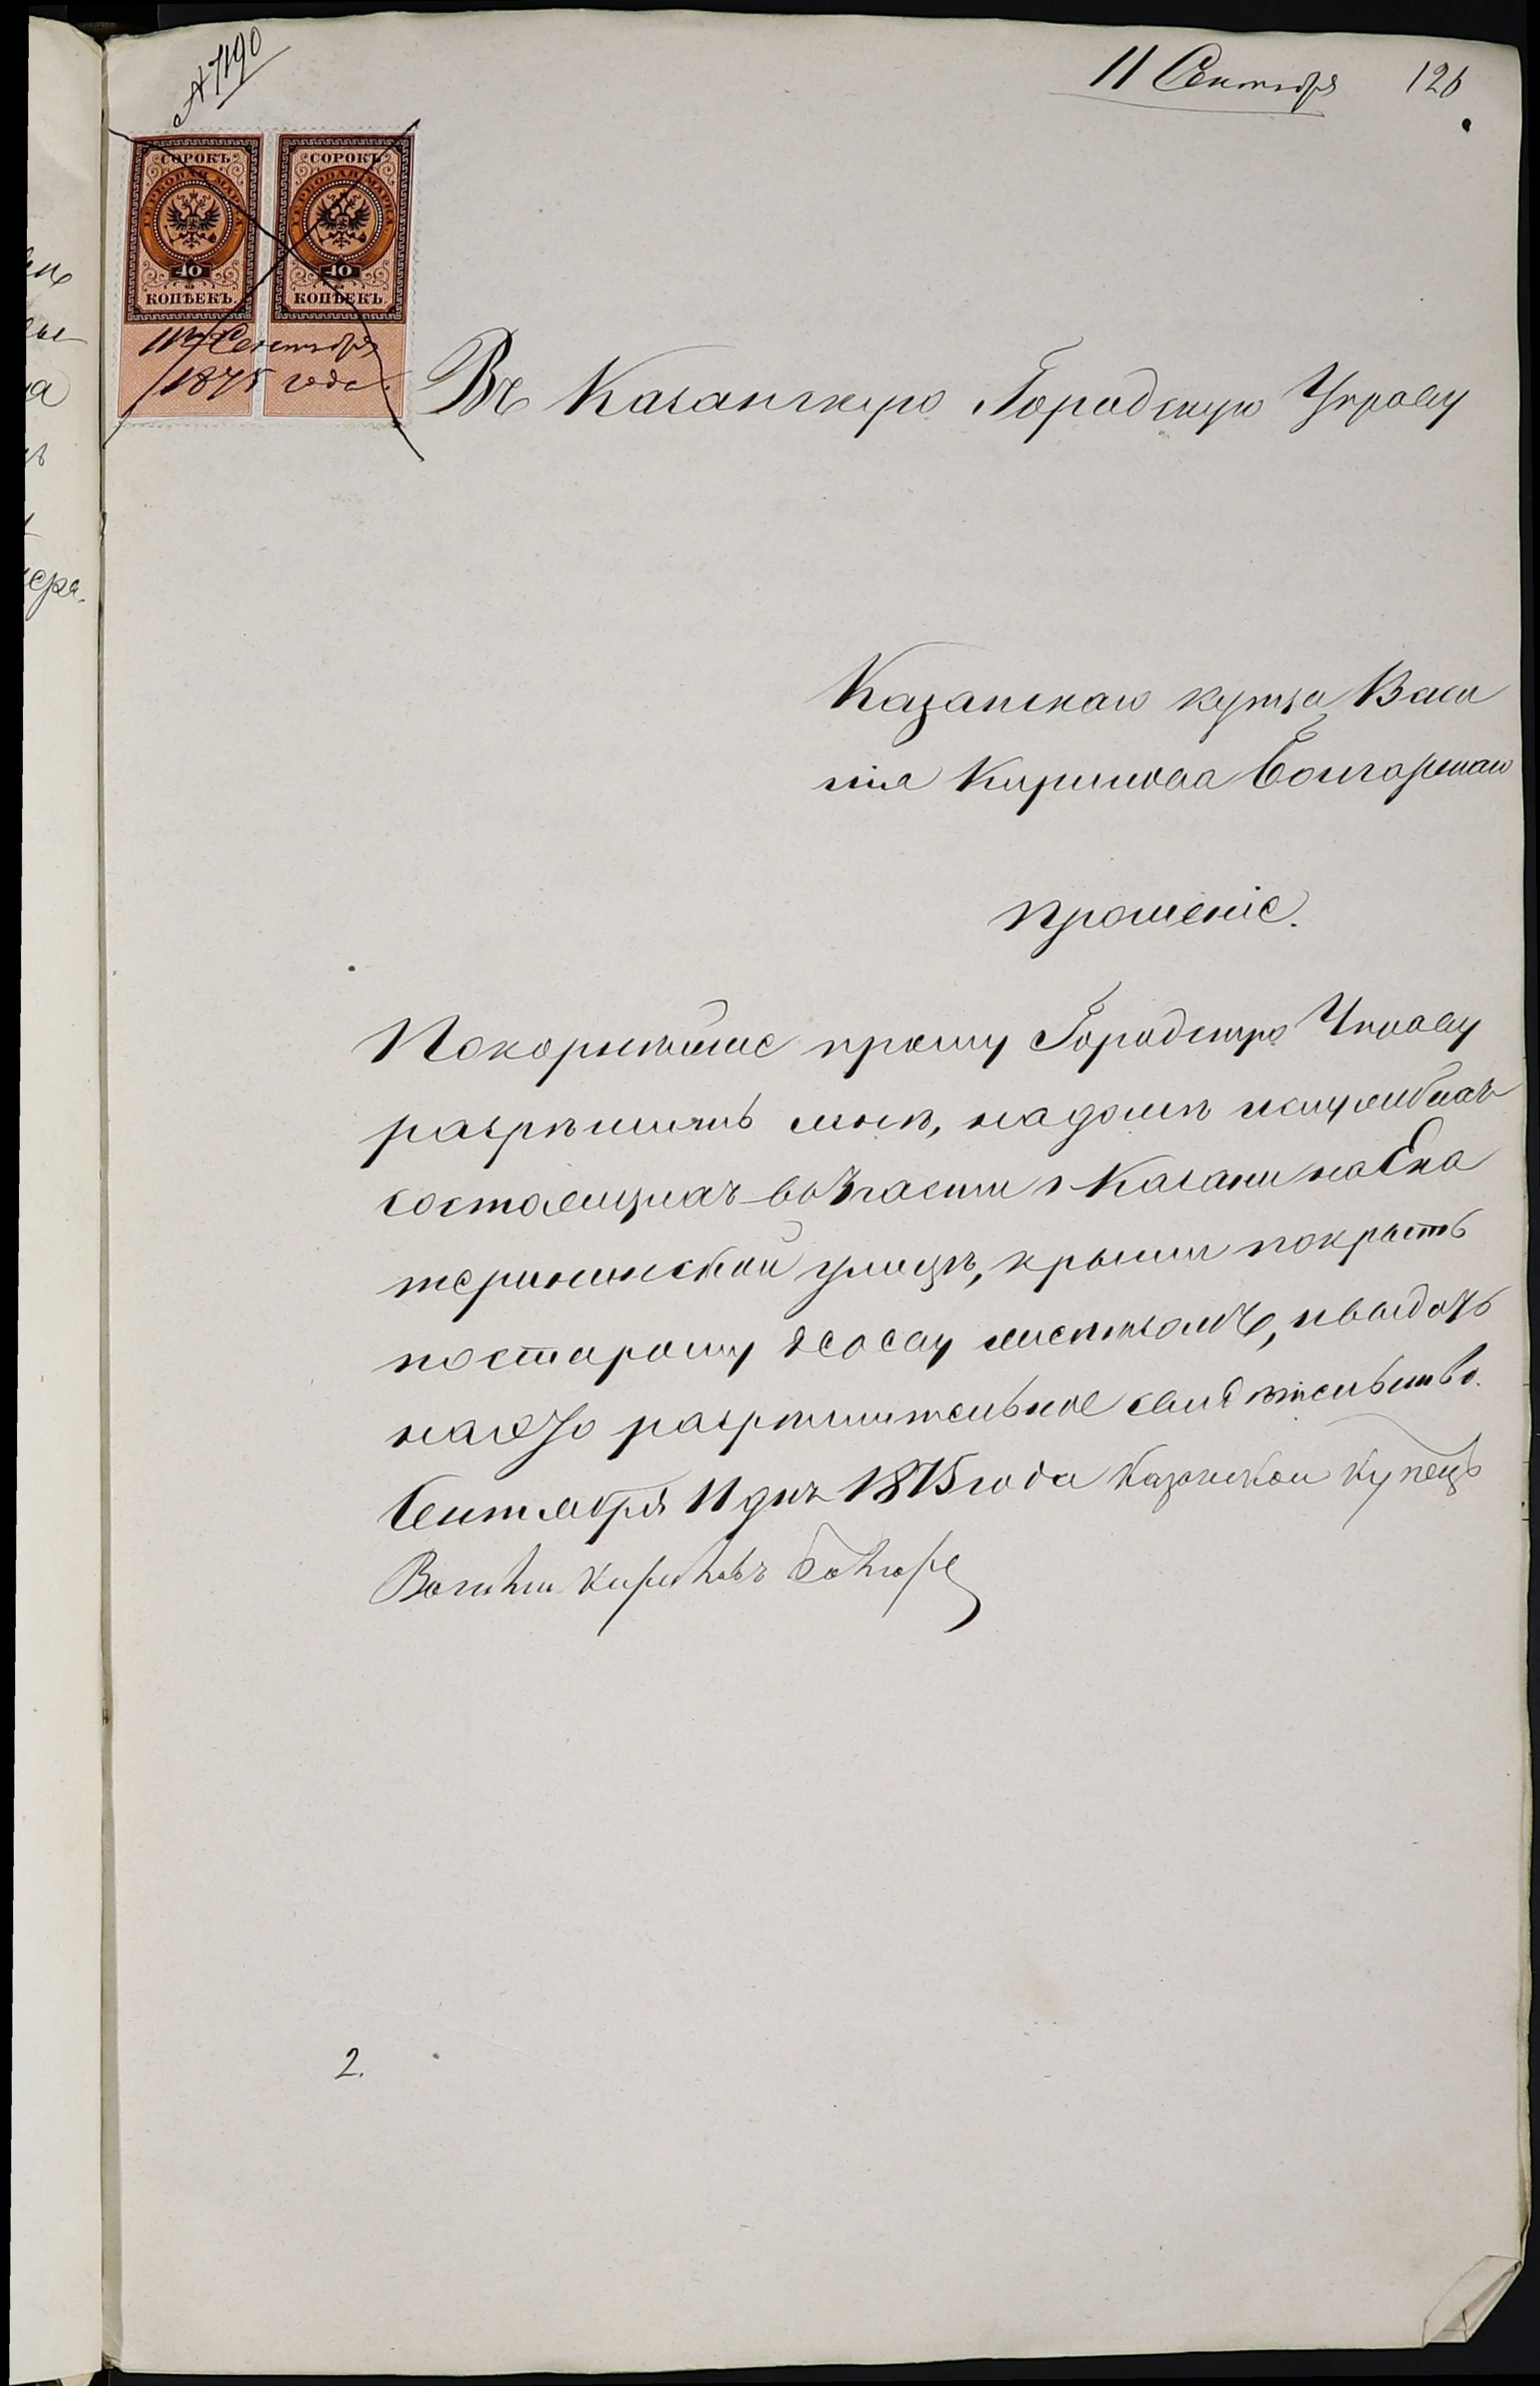 № 7190
11 Сентября 126
СОРОКЪ СОРОКЪ
ГЕРБОВАЯ МАРКА ГЕРБОВАЯ МАРКА
40 40
КОПѢЕКЪ. КОПѢЕКЪ.
11го Сентября
1875 года.
Въ Казанскую Городскую Управу
Казанскаго купца Васи
лія Кирилова Болгарскаго
прошеніе.
Покорнѣйше прошу Городскую Управу
разрѣшить мнѣ, на домѣ и службахъ
состоящихъ во 2 части г Казани на Ека
терининской улицѣ, крыши покрыть
по старому желѣзомъ, и выдать
на это разрѣшительное свидѣтельство.
Сентября 11 дня 1875 года Казанской купецъ
Василии Кириловъ
2.